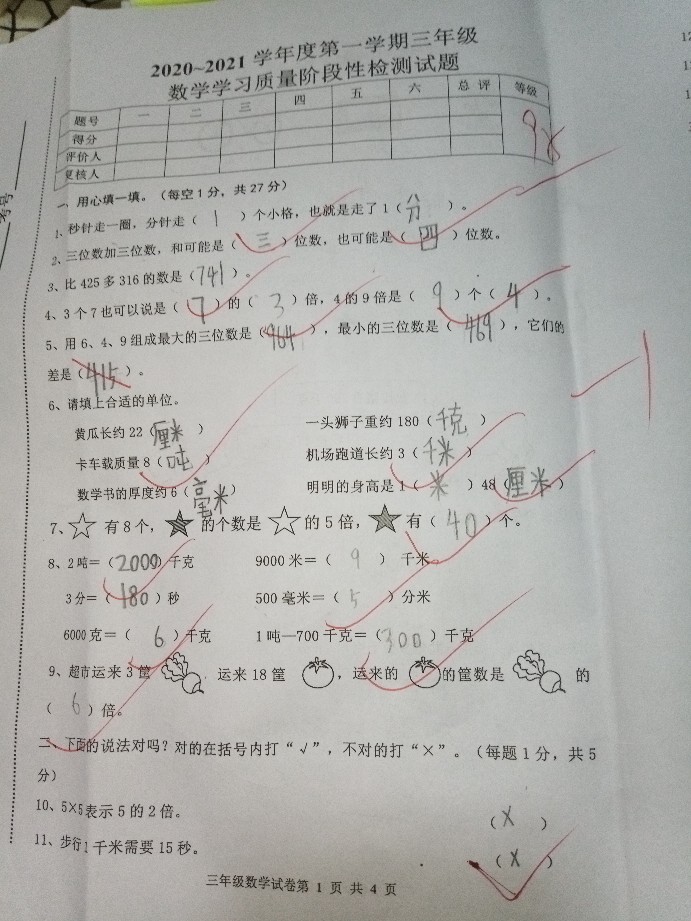 2020~2021 学年度第一学期三年级
数学学习质量阶段性检测试题
题号 一 二 三 四 五 六 总 评 等级
得分
评价人
复核人
一、用心填一填。（每空1分，共27分）
1、秒针走一圈，分针走（ 1 ）个小格，也就是走了1（分）。
2、三位数加三位数，和可能是（三）位数，也可能是（四）位数。
3、比 425 多 316 的数是（741）。
4、3 个 7 也可以说是（ 7 ）的（ 3 ）倍，4 的 9 倍是（ 9 ）个（ 4 ）。
5、用 6、4、9 组成最大的三位数是（964），最小的三位数是（ 469 ），它们的
差是（415）。
6、请填上合适的单位。
黄瓜长约 22（厘米） 一头狮子重约 180（千克）
卡车载质量 8（吨） 机场跑道长约 3（千米）
数学书的厚度约 6（毫米） 明明的身高是 1（米）48（厘米）
7、☆ 有 8 个，★ 的个数是 ☆ 的 5 倍，★ 有（ 40 ）个。
8、2 吨＝（2000）千克 9000 米＝（ 9 ）千米
3 分＝（180）秒 500 毫米＝（ 5 ）分米
6000 克＝（ 6 ）千克 1 吨—700 千克＝（300）千克
9、超市运来 3 筐 ，运来 18 筐 ，运来的 的筐数是 的
（ 6 ）倍。
二、下面的说法对吗？对的在括号内打“√”，不对的打“×”。（每题 1 分，共 5
分）
10、5×5 表示 5 的 2 倍。 （ X ）
11、步行 1 千米需要 15 秒。 （ X ）
三年级数学试卷第 1 页 共 4 页